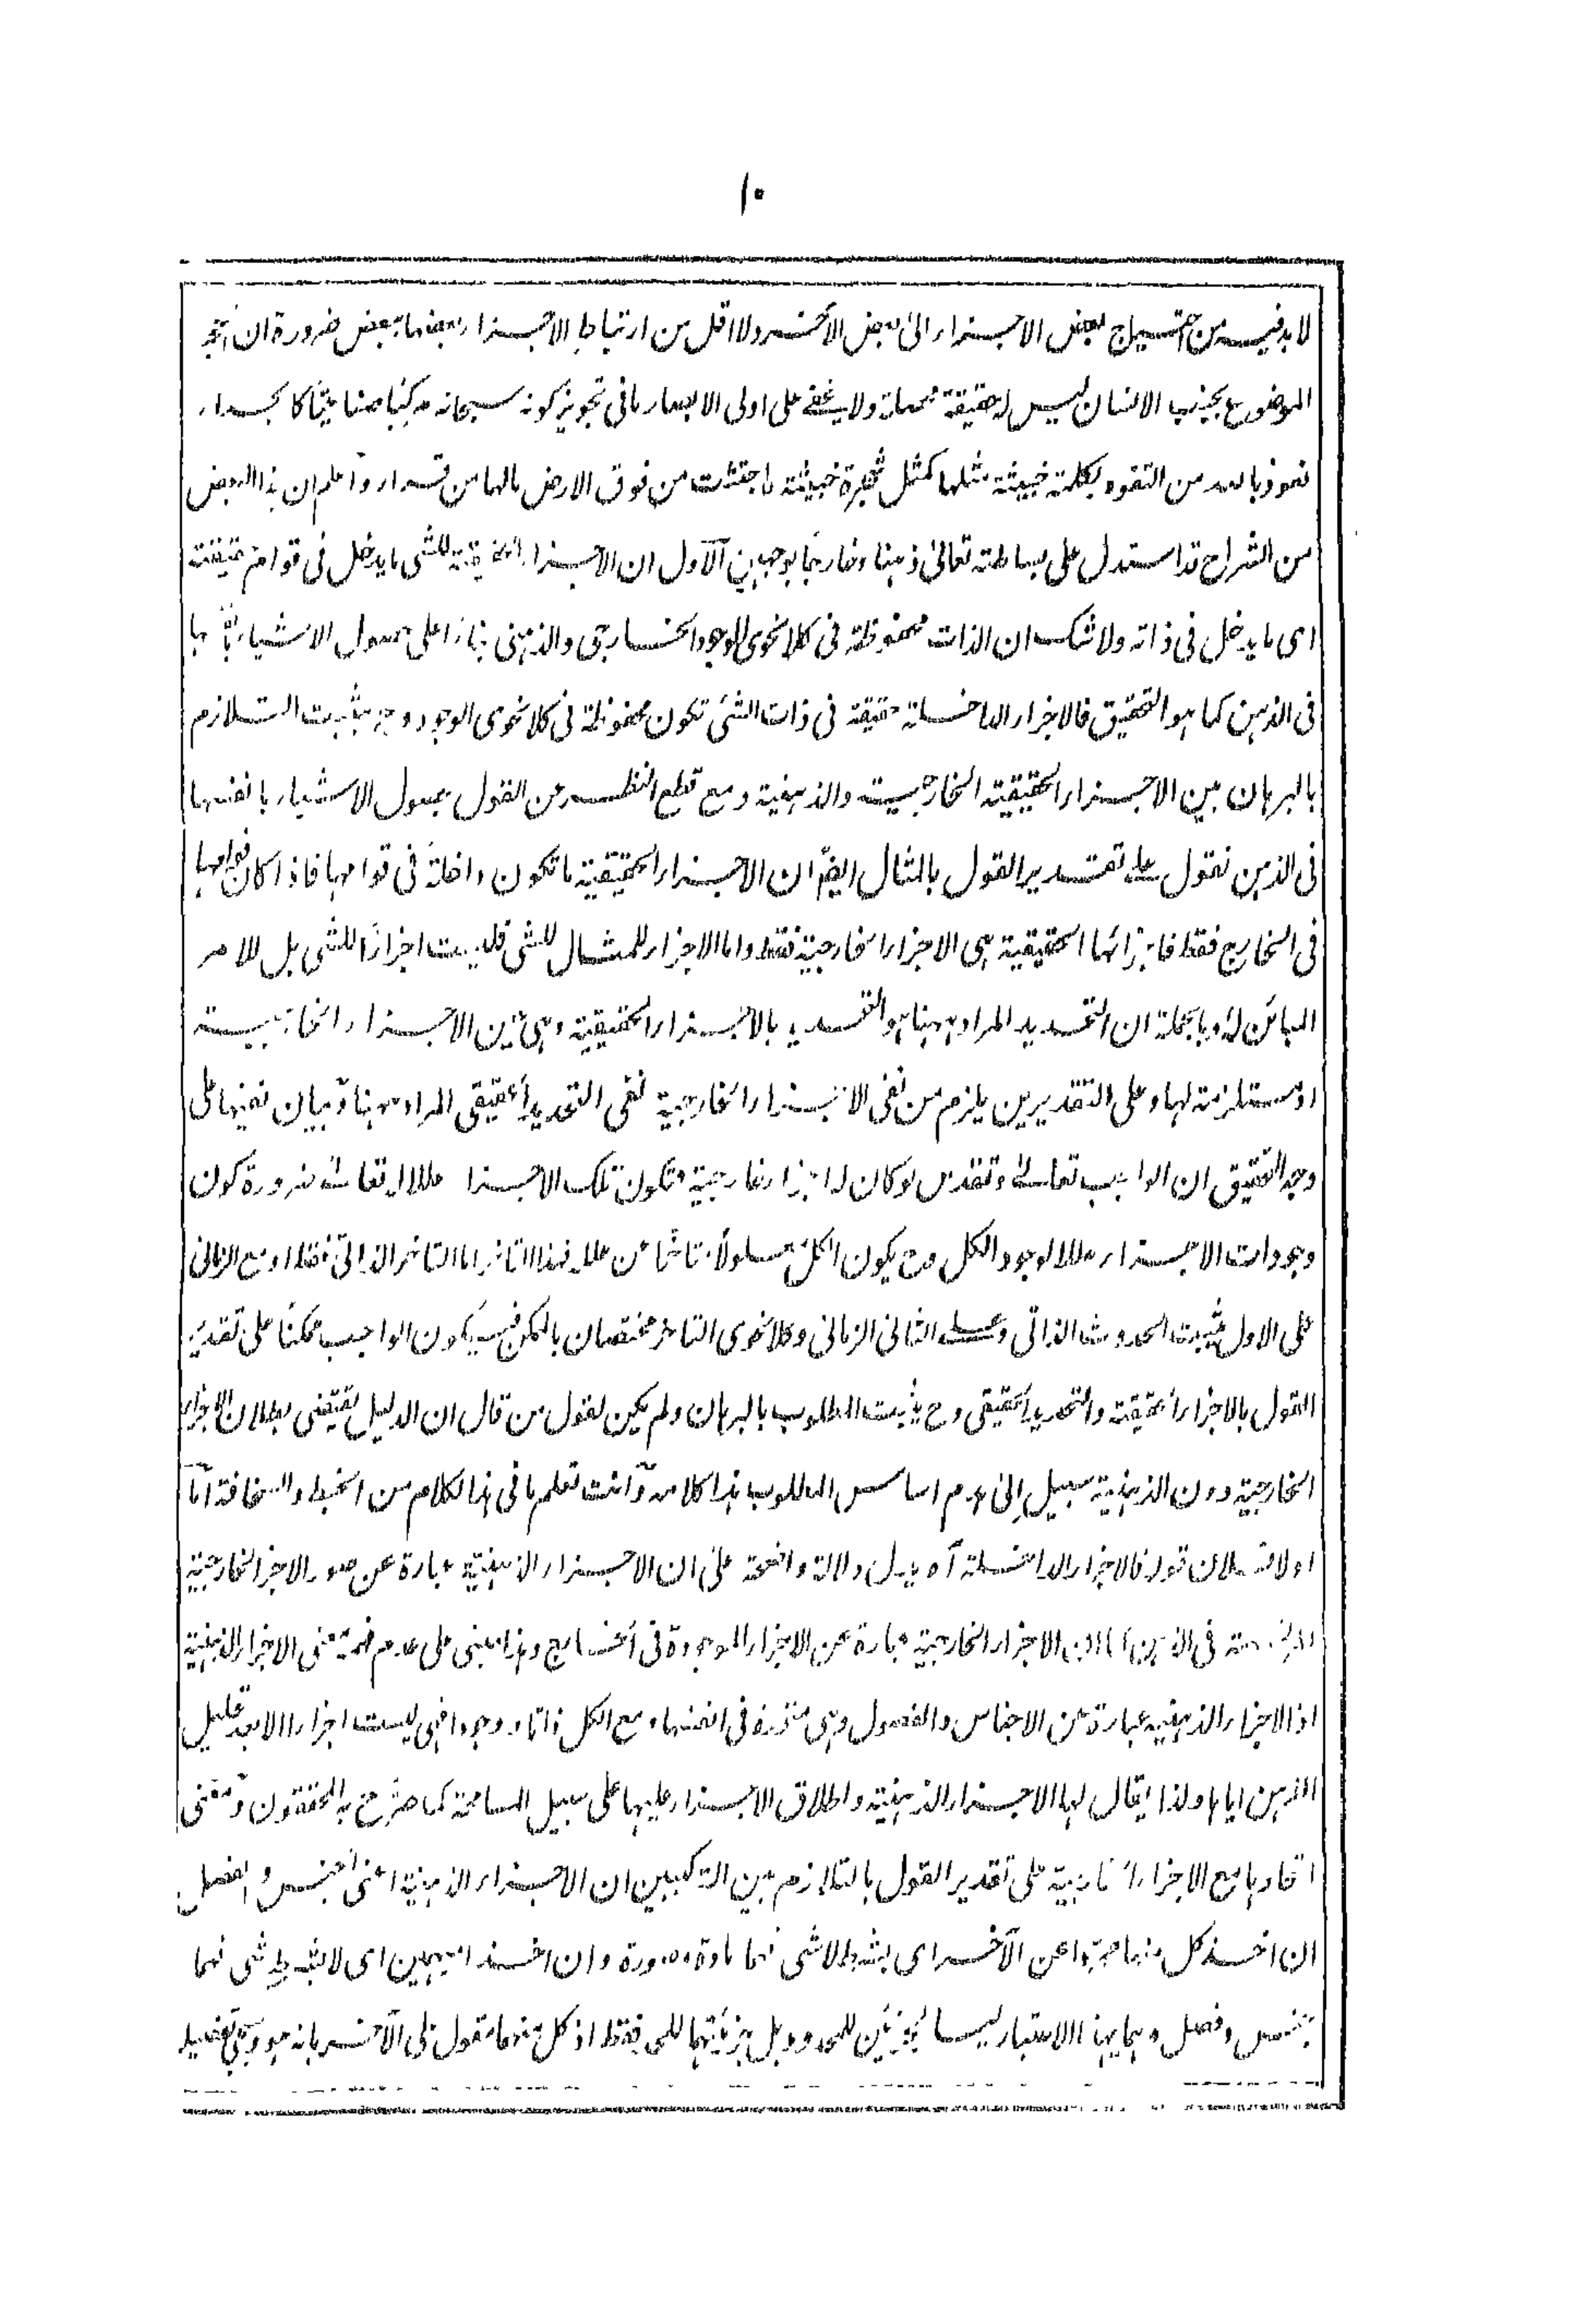 ١٠
لا بد فيه من احتياج بعض الاجزاء الى بعض الآخر ولا اقل من ارتباط الاجزاء بعضها ببعض ضرورة ان الحجر
الموضوع بجنب الانسان ليس له حقيقة محصلة ولا يخفى على اولى الابصار ما فى تجويز كونه سبحانه مركبا صناعيا كالجدار
نعوذ بالله من التفوه بكلمة خبيثة مثلها كمثل شجرة خبيثة اجتثت من فوق الارض مالها من قرار واعلم ان هذا البعض
من الشراح قد استدل على بساطته تعالى ذهنا وخارجا بوجهين الآول ان الاجزاء الحقيقية للشى ما يدخل فى قوام حقيقته
اى ما يدخل فى ذاته ولا شك ان الذات محفوظة فى كلا نحوى الوجود الخارجى والذهنى بناءً على حصول الاشياء بانفسها
فى الذهن كما هو التحقيق فالاجزاء الداخلة حقيقة فى ذات الشئ تكون محفوظة فى كلا نحوى الوجود وح يثبت التلازم
بالبرهان بين الاجزاء الحقيقية الخارجية والذهنية ومع قطع النظر عن القول بحصول الاشياء بانفسها
فى الذهن نقول على تقدير القول بالمثال ايضً ان الاجزاء الحقيقية ما تكون داخلة فى قوامها فاذا كان قوامها
فى الخارج فقط فاجزائها الحقيقية هى الاجزاء الخارجية فقط واما الاجزاء للمثال للشى فليست اجزاءً للشى بل للامر
المبائن له وبالجملة ان التحديد المراد ههنا هو التحديد بالاجزاء الحقيقية وهى عين الاجزاء الخارجية
او مستلزمة لها وعلى التقديرين يلزم من نفى الاجزاء الخارجية نفى التحديد الحقيقى المراد ههنا وبيان نفيها على
وجه التحقيق ان الواجب تعالى وتقدس لو كان له اجزاء خارجية فتكون تلك الاجزاء عللا له تعالى ضرورة كون
وجودات الاجزاء عللا لوجود الكل وح يكون الكل معلولا متأخرا عن علله فهذا التاخر اما التاخر الذاتى فقط او مع الزمانى
على الاول يثبت الحدوث الذاتى وعلى الثانى الزمانى وكلا نحوى التاخر مختصان بالممكن فيكون الواجب ممكنا على تقدير
القول بالاجزاء الحقيقة والتحديد الحقيقى وح يثبت المطلوب بالبرهان ولم يكن لقول من قال ان الدليل يقتضى بطلان الاجزاء
الخارجية دون الذهنية سبيل الى هدم اساس المطلوب هذا كلامه وانت تعلم ما فى هذا الكلام من الخبط والسخافة اما
اولا فلان قوله فالاجزاء الداخلة آه يدل دلالة واضحة على ان الاجزاء الذهنية عبارة عن صور الاجزاء الخارجية
فى الذهن كما ان الاجزاء الخارجية عبارة عن الاجزاء الموجودة فى الخارج وهذا مبنى على عدم فهم معنى الاجزاء الذهنية
اذ الاجزاء الذهنية عبارة عن الاجناس والفصول وهى متحدة فى انفسها ومع الكل ذاتا ووجودا فهى ليست اجزاء الا بعد تحليل
الذهن اياها ولذا يقال لها الاجزاء الذهنية واطلاق الاجزاء عليها على سبيل المسامحة كما صرح به المحققون ومعنى
اتحادها مع الاجزاء الخارجية على تقدير القول بالتلازم بين التركيبين ان الاجزاء الذهنية اعنى الجنس والفصل
ان اخذ كل منهما مجردا عن الآخر اى بشرط لا شى فهما مادة وصورة وان اخذا مبهمين اى لا بشرط شى فهما
جنس وفصل وهما بهذا الاعتبار ليسا بجزئين للمحدود بل جزئيتهما للحد فقط اذ كل منهما مقول على الآخر بانه هو